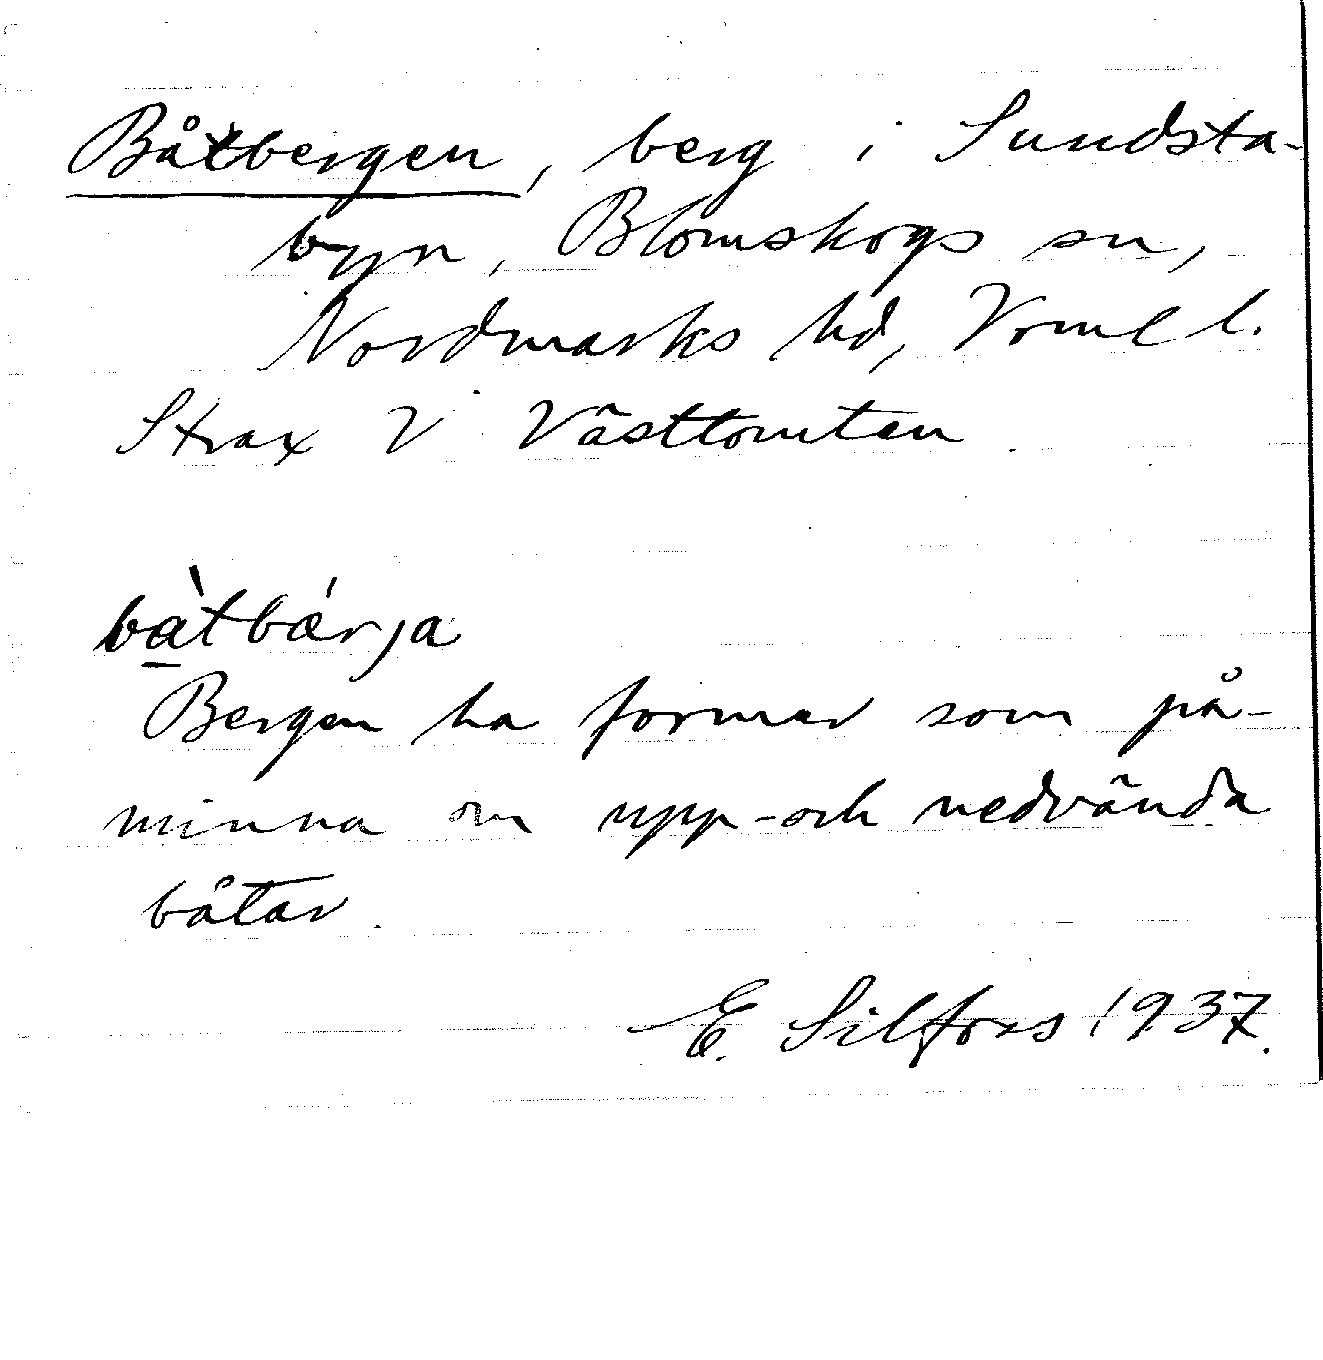 Båtbergen, berg i Sundsta-
byn, Blomskogs sn,
Nordmarks hd, Vrml l.
Strax V Västtomten.
bàtbǽrja
Bergen ha former som på-
minna om upp-och nedvända
båtar.
E. Silfors 1937.